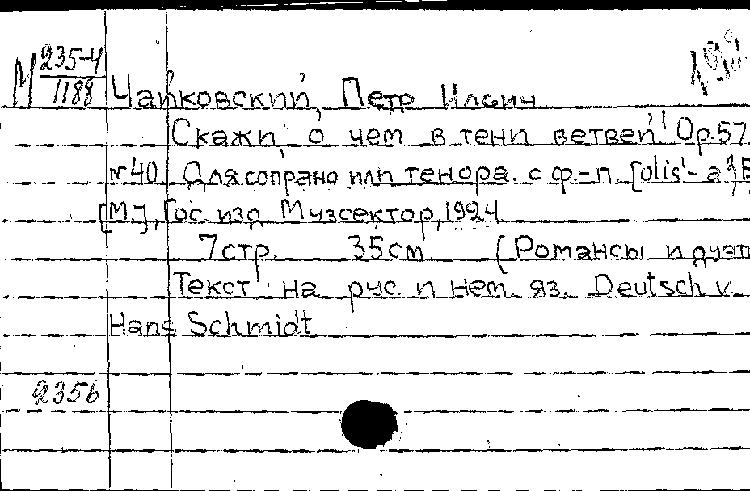 М 235-4
1188
Чайковский, Петр Ильич
Скажи, о чем в тени ветвей! Op.57
№40 Для сопрано или тенора с ф.-п.
[М], Гос. изд. Музсектор, 1924
7 стр. 35 см (Романсы и дуэт
Текст на рус и нем. яз. Deutsch v.
Hans Schmidt
2356